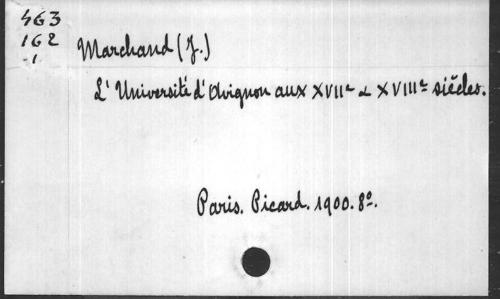 463
162
1
Marchand (J.)
L'Université d'Avignon aux XVIIe & XVIIIe siècles.
Paris. Picard. 1900. 8º.